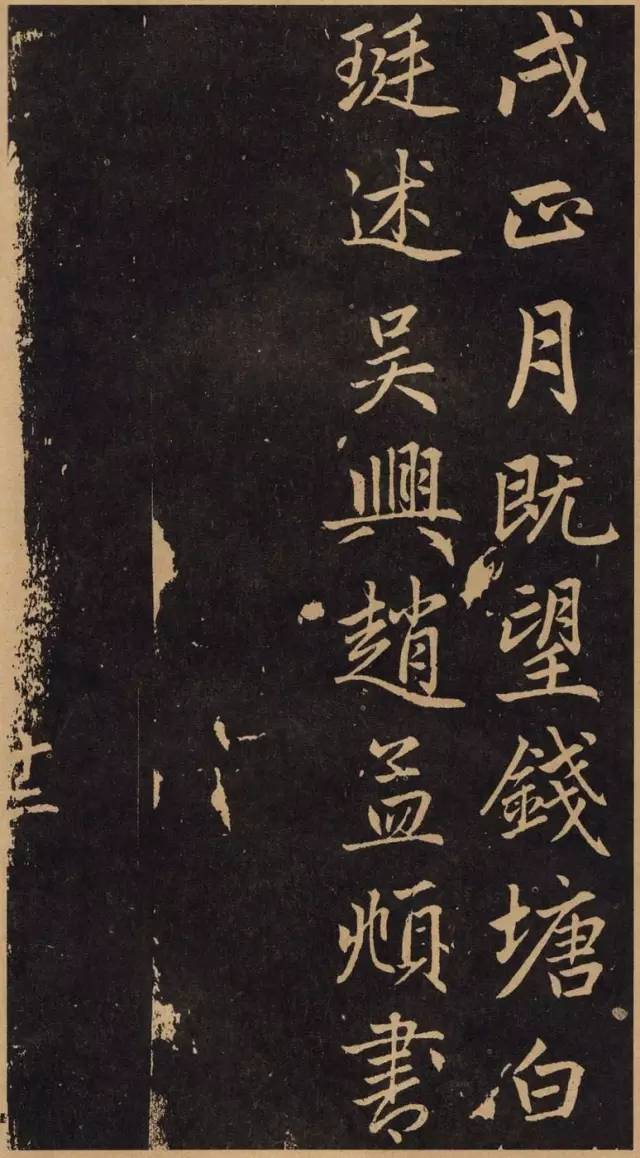 戌正月既望錢塘白
珽述吳興趙孟頫書
十二